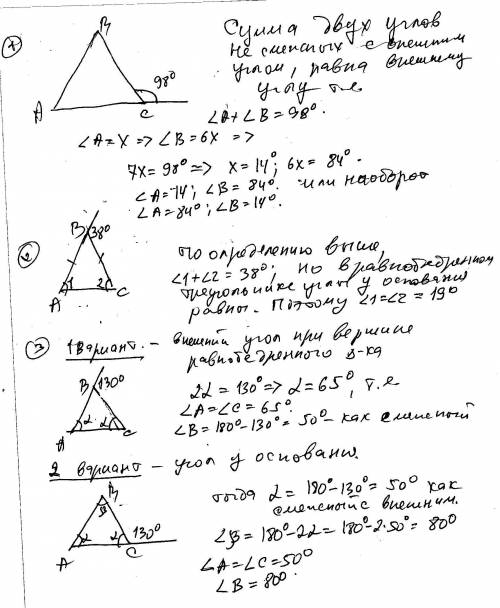 1
B
98°
A
C
Сумма двух углов
не смежных с внешним
углом, равна внешнему
углу т.е
∠A+∠B=98°.
∠A=x => ∠B=6x =>
7x=98° => x=14°; 6x=84°.
∠A=14; ∠B=84°. или наоборот
∠A=84°; ∠B=14°.
2
B 38°
1 2
A C
По определению выше,
∠1+∠2=38°; но в равнобедренном
треугольнике углы у основания
равны. Поэтому ∠1=∠2=19°
3
1 вариант. – внешний угол при вершине
равнобедренного Δ-ка
B 130°
α α
A C
2α=130° => α=65°, т.е
∠A=∠C=65°.
∠B=180°-130°=50° - как смежный
2 вариант – угол у основания.
B
β
α α 130°
A C
тогда α=180°-130°=50° как
смежный с внешним.
∠β=180°-2α=180°-2·50°=80°
∠A=∠C=50°
∠B=80°.